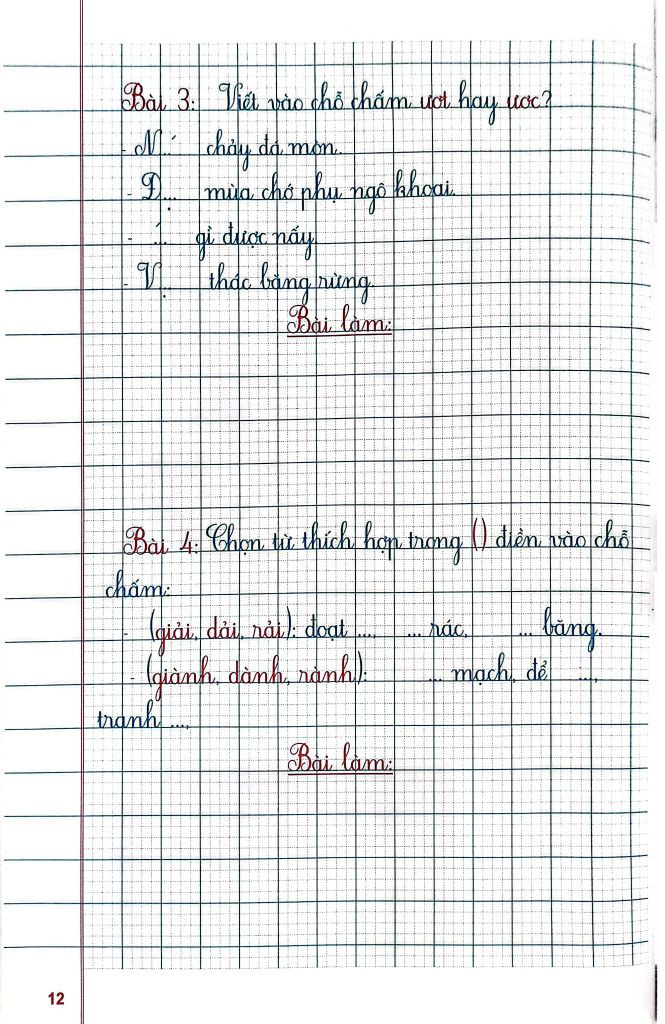 Bài 3: Viết vào chỗ chấm ươt hay ươc?
- N...́ chảy đá mòn.
- D...̣ mùa chớ phụ ngô khoai.
- ...́ gì được nấy
- V...̣ thác băng rừng.
Bài làm:
Bài 4: Chọn từ thích hợp trong () điền vào chỗ
chấm:
- (giải, dải, rải): đoạt ..., ... rác, ... băng.
- (giành, dành, rành): ... mạch, để ...,
tranh ...,
Bài làm:
12